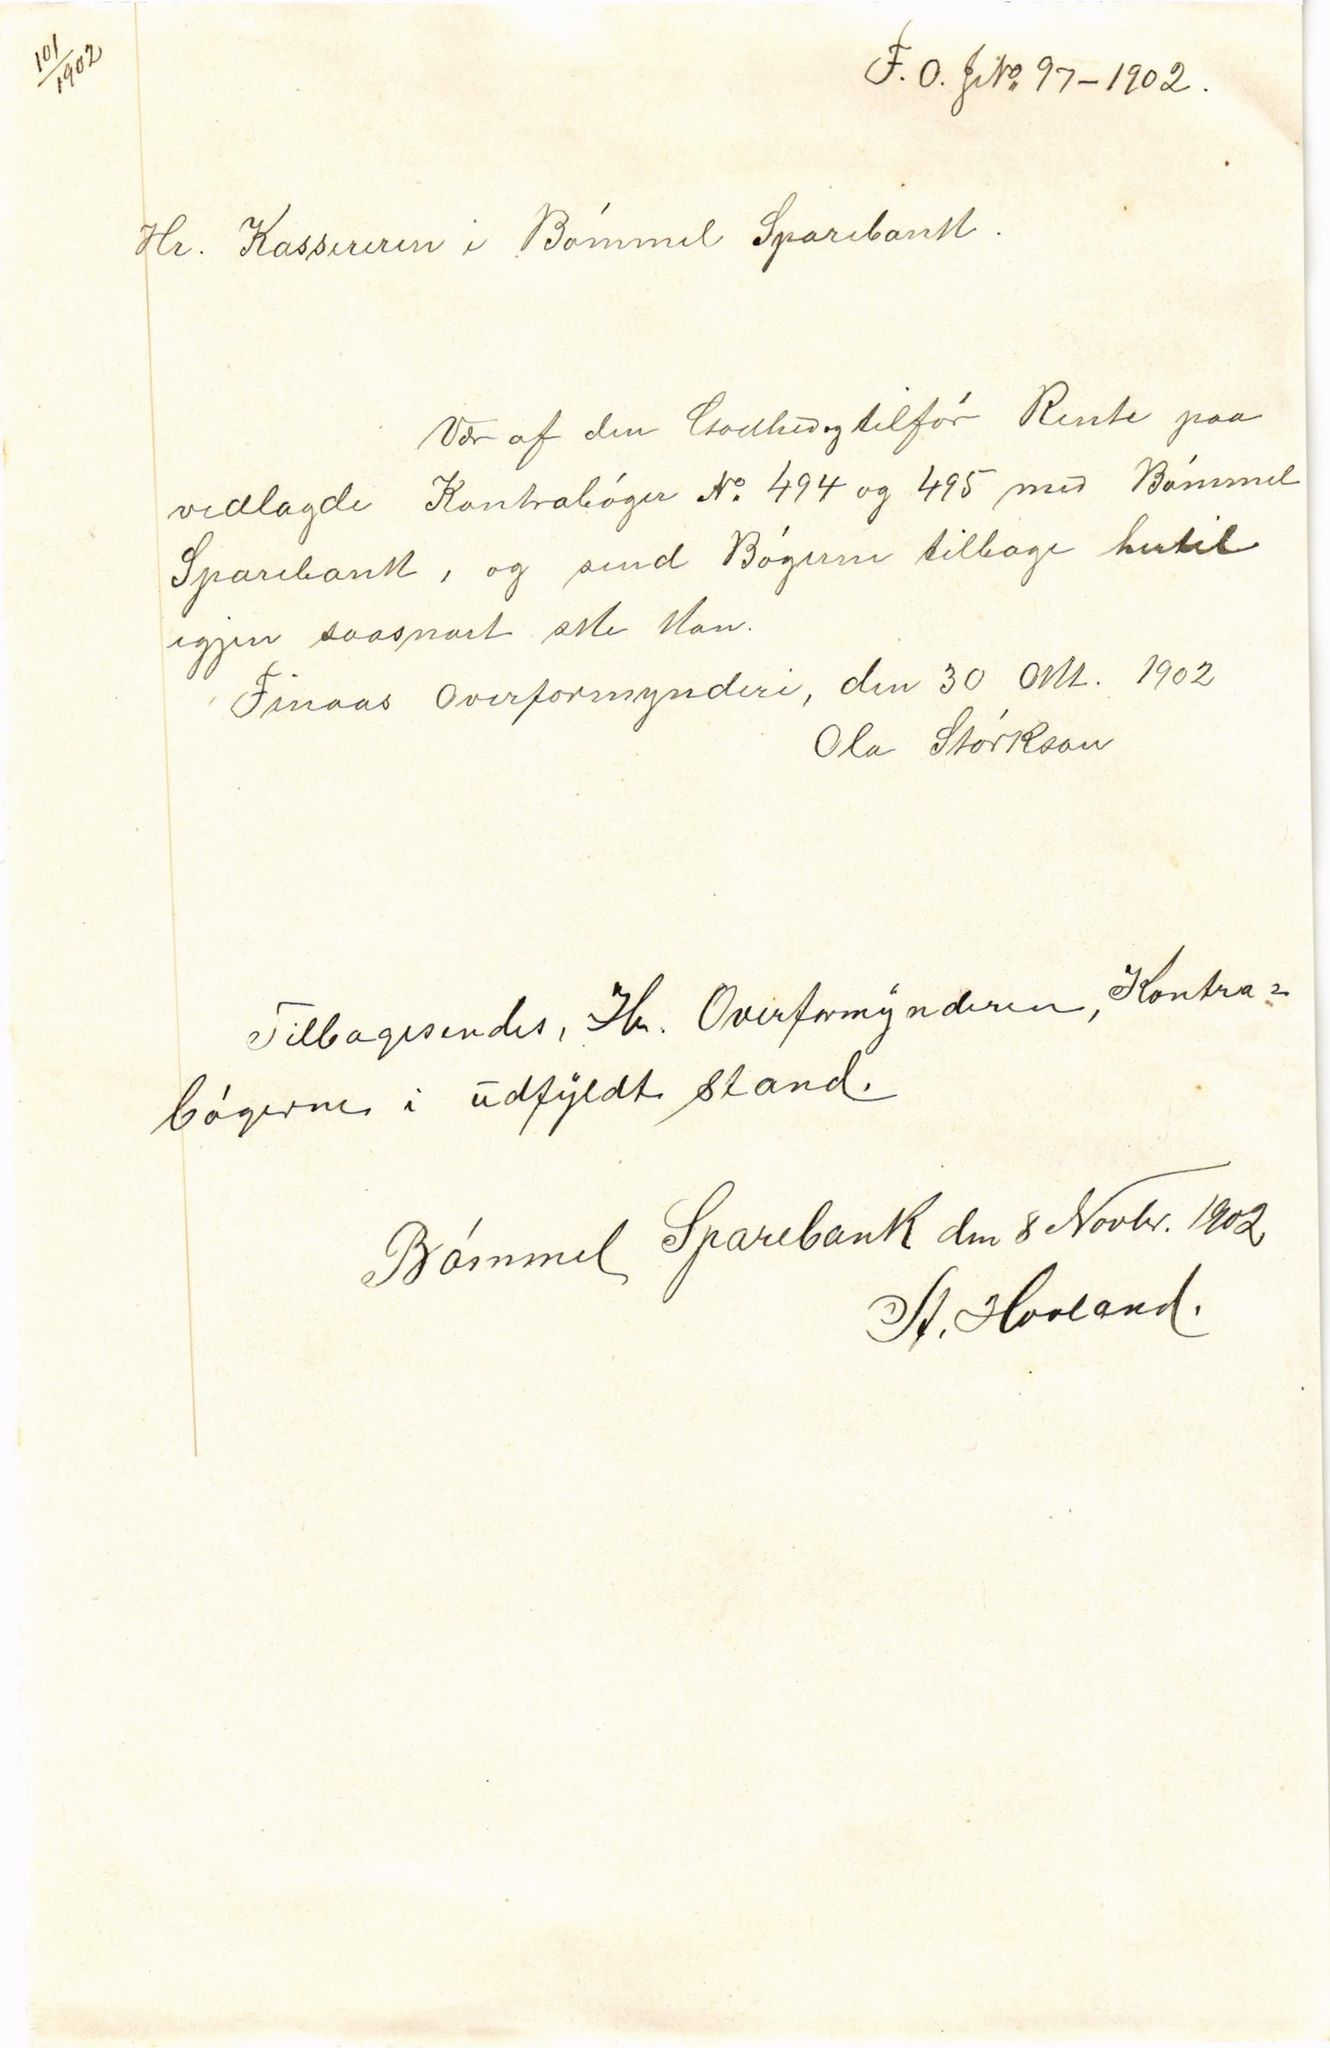 101/1902
F. O. J No 97-1902.
Hr. Kassereren i Bómmel Sparebank.
Vær af den Godhed og tilfór Rente paa
vedlagde Kontrabóger No. 494 og 495 med Bómmel
Sparebank, og send Bógerne tilbage hertil
igjen saasnart ske kan.
Finaas Overformynderi, den 30 Okt. 1902
Ola Stórkson
Tilbagesendes, Hr. Overformÿnderen, Kontra=
bógerne i ūdfÿldt stand.
Bómmel Sparebank den 8 Novbr. 1902
St. Hovland.